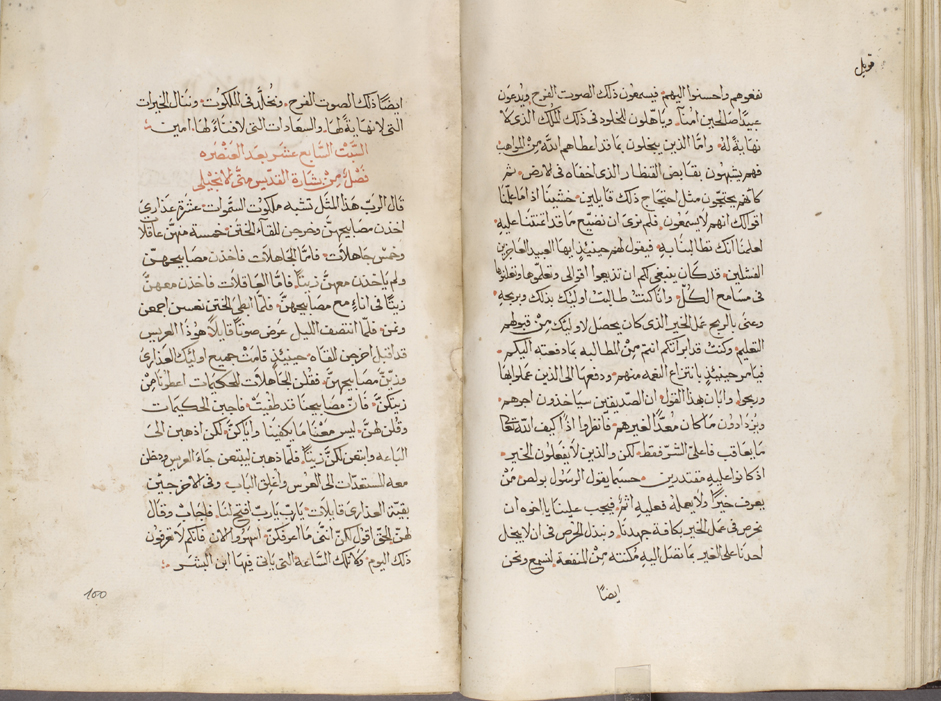 قوبل
نفعوهم واحسنوا اليهم فيسمعون ذلك الصوت الفرح ويدعون
عبيدًا صالحين امنآ ويآهلون للخلود فى ذلك الملك الذى لا
نهاية له واما الذين يبخلون بما قد اعطاهم الله من المواهب
فهم يتشبهون بقابض القنطار الذى اخفاه فى الارض ثم
كانهم يحتجون مثل احتجاج ذاك قايلين خشينا اذا ما علمنا
اقوالك انهم لا يسمعون فلم نرى ان نضيع ما قد ائتمنتنا عليه
لعلمنا انك تطالبنا به فيقول لهم حينيذ ايها العبيد العاجزين
الفشلين قد كان ينبغى لكم ان تذيعوا اقوالى وتعلموها وتعلنوها
فى مسامع الكل وانا كنت طالبت اوليك بذلك وبربحه
وعنى بالربح عمل الخير الذى كان يحصل لاوليك من قبولهم
التعليم وكنت قد ابرأتكم انتم من المطالبه بما دفعته اليكم
فيامر حينيذ بانتزاع النعمه منهم ودفعها الى الذين عملوا بها
وربحوا وابان بهذا القول ان الصديقين سياخذون اجرهم
ويزدادون ما كان معدًا لغيرهم فانظروا اذًا كيف الله تعالى
ما يعاقب فاعلى الشر فقط لكن والذين لا يفعلون الخير
اذ كانوا عليه مقتدرين حسبما يقول الرسول بولص من
يعرف خيرًا ولا يعمله فعليه اثم فيجب علينا يا اخوه ان
نحرص فى عمل الخير بكافة جهدنا ونبذل الحرص فى ان لا يبخل
احدنا على الغير بما تصل اليه مكنته من المنفعة لنسمع ونحن
ايضًا
ايضًا ذلك الصوت الفرح ونخلد فى الملكوت وننال الخيرات
التى لا نهاية لها والسعادات التى لا فناء لها امين
السبت السابع عشر بعد العنصره
فصل من بشارة القديس متى الانجيلى
قال الرب هذا المثل تشبه ملكوت السموات عشرة عذارى
اخذن مصابيحهن وخرجن للقاء الختن خمسة منهن عاقلات
وخمس جاهلات فاما الجاهلات فاخذن مصابيحهن
ولم ياخذن معهن زيتًا فاما العاقلات فاخذن معهن
زيتًا فى اناء مع مصابيحهن فلما ابطى الختن نعسن اجمعن
ونمن فلما انتصف الليل عرض صوتًا قايلا هوذا العريس
قد اقبل اخرجن للقاه حينيذ قامت جميع اوليك العذارى
وزين مصابيحهن فقلن الجاهلات للحكيمات اعطونا من
زيتكن فان مصابيحنا قد طفيت فاجبن الحكيمات
وقلن لهن ليس معنا ما يكفينا واياكن لكن اذهبن الى
الباعه وابتعن لكن زيتًا فلما ذهبن ليبتعن جاء العريس ودخلن
معه المستعدات الى العرس واغلق الباب وفى الاخر جين
بقية العذارى قايلات يارب يارب افتح لنا فاجاب وقال
لهن الحق اقول لكن اننى ما اعرفكن اسهروا الان فانكم لا تعرفون
ذلك اليوم ولا تلك الساعه التى ياتى فيها ابن البشر
100